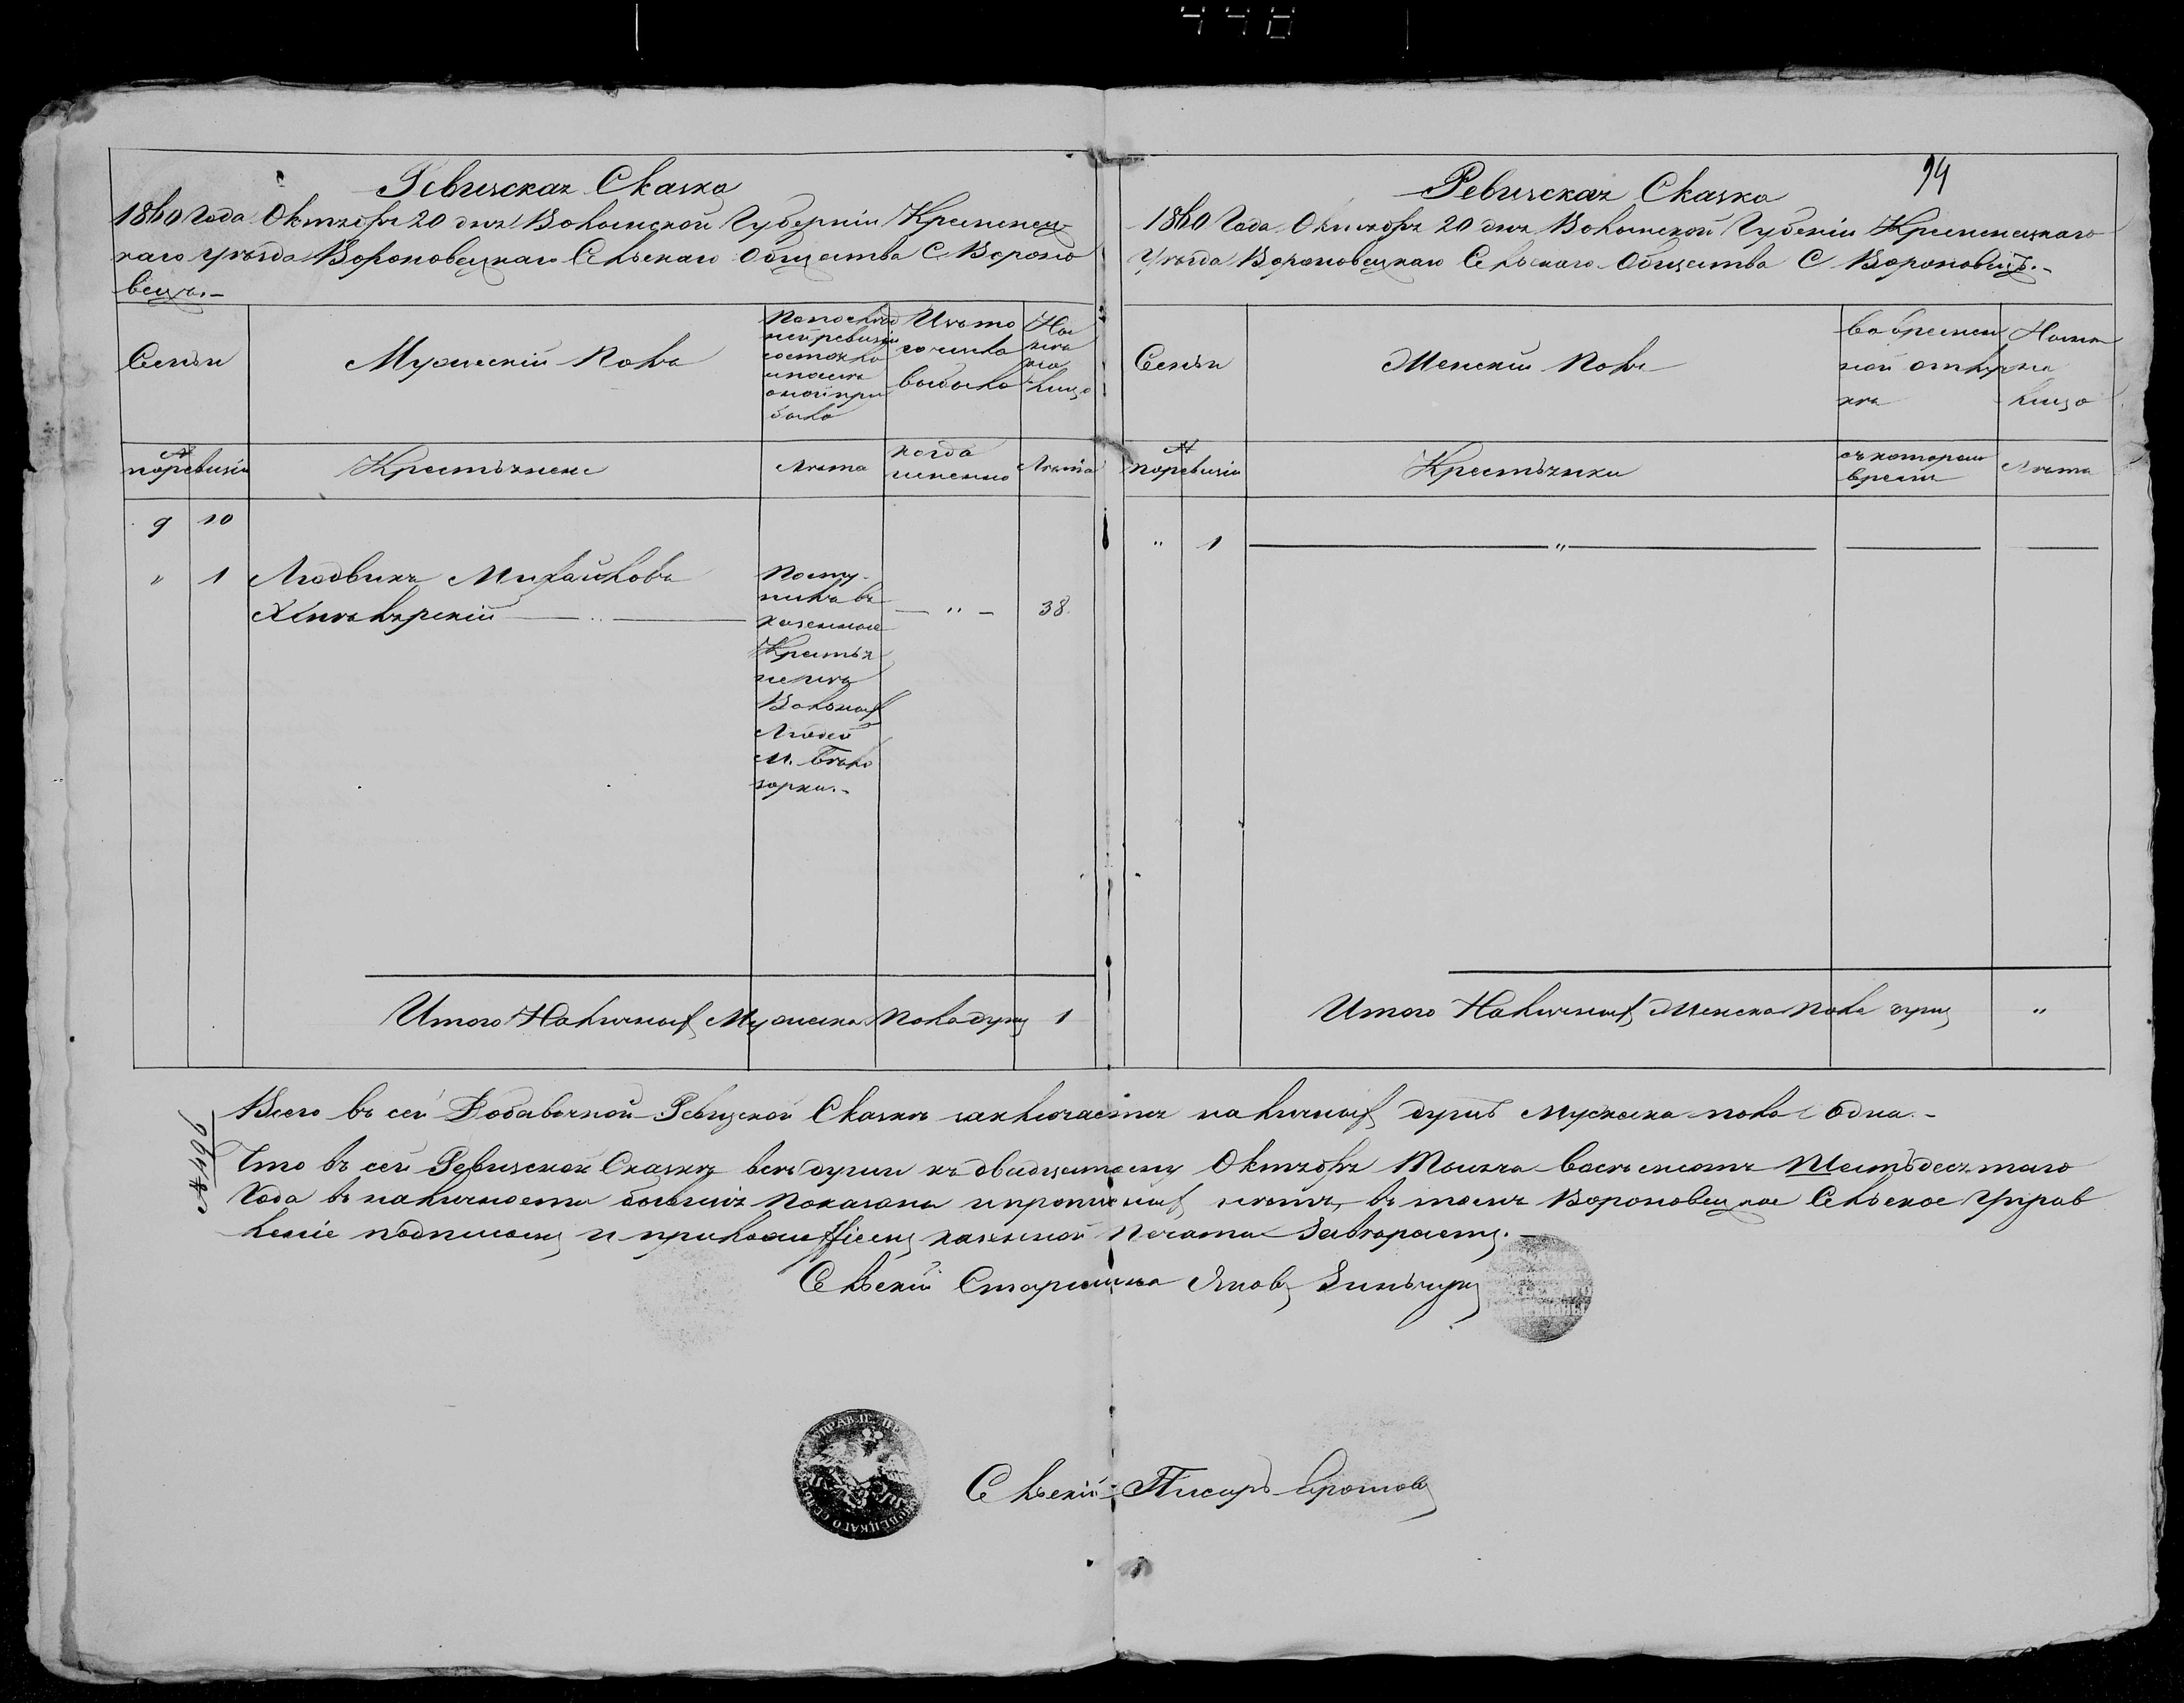 448
Ревизская Сказка
1860 года Октября 20 дня Волынской Губерніи Кременец-
каго уѣзда Вороновецкаго Сельскаго Общества С. Вороно
вецъ.-
Семьи
Мужескій Полъ
По послѣд
ней ревизіи
состояло
и послѣ
оной при
было
Изъ то
го числа
выбыло
Ны
нѣ на
лицо
№
по ревизіи
Крестьяне
Лѣта
когда
именно
Лѣта
9 10
" 1 Людвикъ Михайловъ
Посту-
пилъ въ
казенные
Крестья
не изъ
Вольныхъ
Людей
М. Бѣло
зорки.-
— " — 38.
Итого Наличныхъ Мужеска Пола душъ 1
94
Ревизская Сказка
1860 Года Октября 20 дня Волынской Губеніи Кременецкаго
Уѣзда Вороновецкаго Сельскаго Общества С. Вороновецъ.-
Семьи
Женскій Полъ
Во времен
ной отлуч
кѣ
Нынѣ
на
лицо
№
по ревизіи
Крестьянки
съ котораго
времни
Лѣта
" 1 "
Итого Наличныхъ Женска Пола душъ "
Всего въ сей Добавочной Ревизской Сказкѣ заключается наличныхъ душъ мужеска пола одна.-
Что въ сей Ревизской Сказкѣ всѣ души къ двадцатому Октября Тысяча восемьсотъ Шестьдесятаго
Года въ наличности бывшія показаны и прописныхъ нѣтъ, въ томъ Вороновецкое Сельское Управ
леніе подписомъ и приложеніемъ казенной печати завѣряетъ.
Сельскій Старшина Яковъ Зинчукъ
Сельскій Писарь